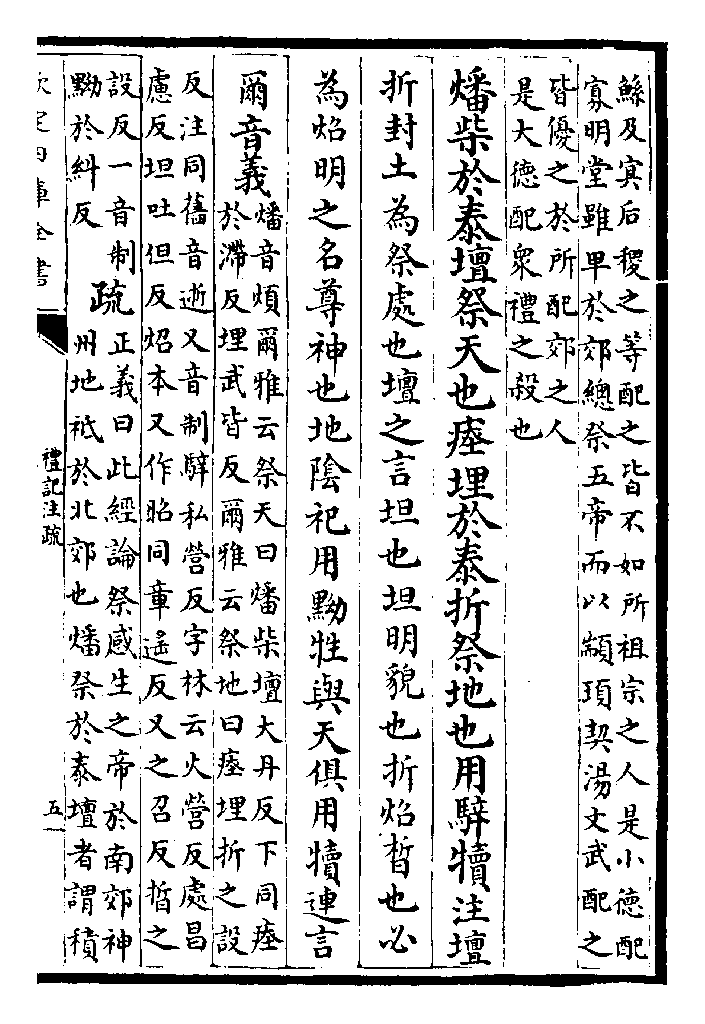 鯀及㝠后稷之等配之皆不如所祖宗之人是小德配
寡明堂雖卑於郊總祭五帝而以顓頊契湯文武配之
皆優之於所配郊之人
是大德配衆禮之殺也
燔柴於泰壇祭天也瘞埋於泰折祭地也用騂犢注壇
折封土為祭處也壇之言坦也坦明貌也折炤晢也必
為炤明之名尊神也地隂祀用黝牲與天俱用犢連言
爾音義
燔音煩爾雅云祭天曰燔柴壇大丹反下同瘞
於滯反埋武皆反爾雅云祭地曰瘞埋折之設
反注同舊音逝又音制騂私營反字林云火營反處昌
慮反坦吐但反炤本又作昭同章遥反又之召反晢之
設反一音制
黝於糾反
疏
正義曰此經論祭感生之帝於南郊神
州地祗於北郊也燔祭於泰壇者謂積
欽定四庫全書
禮記注疏
五